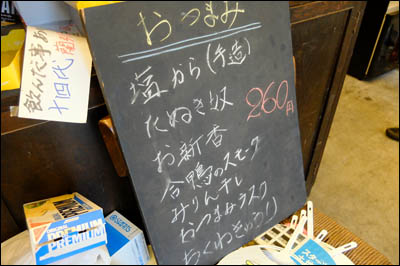 おつまみ
塩から(手造)
たぬき奴
お新香
260円
合鴨のスモーク
みりん干し
おつまみラスク
ちくわきゅうり
飲んだ事ある
十四代
PREMIUM